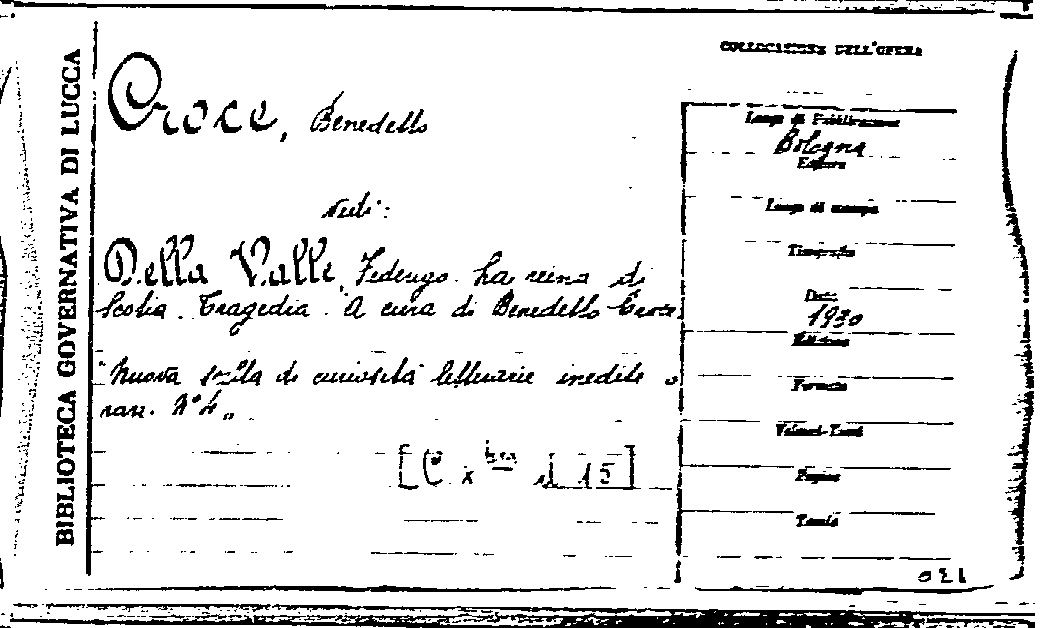 BIBLIOTECA GOVERNATIVA DI LUCCA
Croce, Benedetto
Vedi:
Della Valle, Federigo. La reina di
Scotia. Tragedia. A cura di Benedetto Croce.
"Nuova scelta di curiosità letterarie inedite o
rare. N° 4"
[C x 15]
COLLOCAZIONE DELL'OPERA
Luogo di Pubblicazione
Bologna
Editore
Luogo di stampa
Tipografia
Data
1930
Edizione
Formato
Volumi-Tomi
Pagine
Tavole